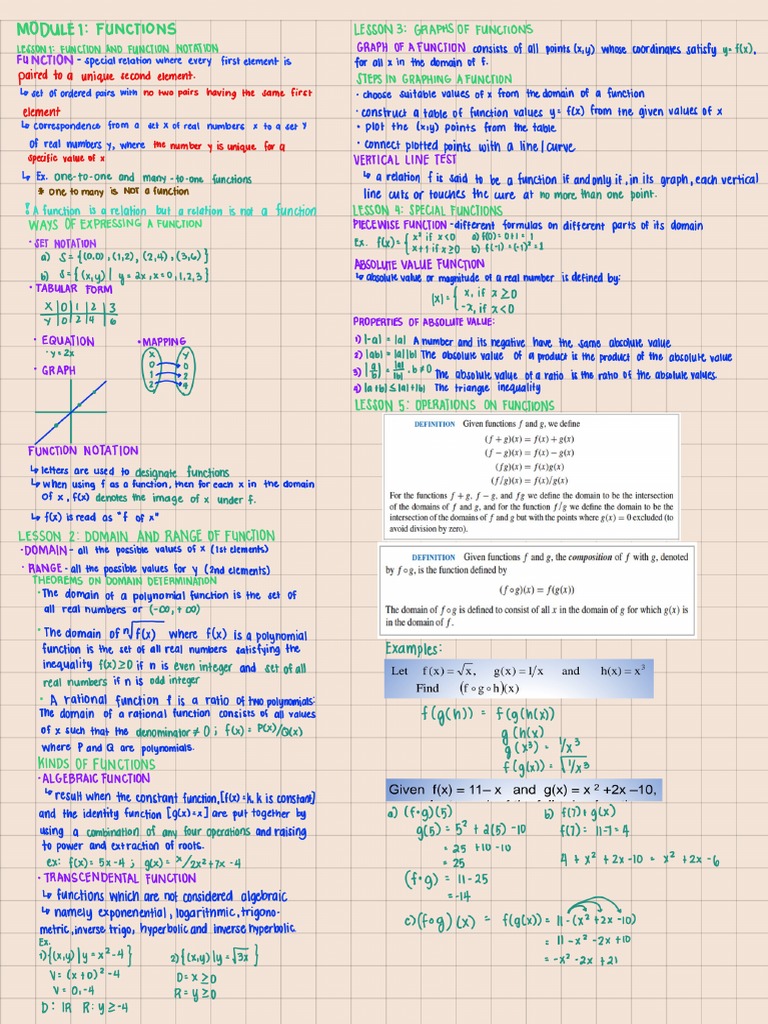 MODULE 1: FUNCTIONS
LESSON 1: FUNCTION AND FUNCTION NOTATION
FUNCTION - special relation where every first element is
paired to a unique second element.
↳ set of ordered pairs with no two pairs having the same first
element
↳ correspondence from a set X of real numbers x to a set Y
of real numbers y, where the number y is unique for a
specific value of x
↳ Ex. one-to-one and many-to-one functions
* one to many is NOT a function
! A function is a relation but a relation is not a function
WAYS OF EXPRESSING A FUNCTION
• SET NOTATION
a) S = {(0,0), (1,2), (2,4), (3,6)}
b) S = {(x,y) | y = 2x, x = 0,1,2,3}
• TABULAR FORM
X | 0 | 1 | 2 | 3
Y | 0 | 2 | 4 | 6
• EQUATION
• y = 2x
• MAPPING
X Y
0 0
1 2
2 4
• GRAPH
FUNCTION NOTATION
↳ letters are used to designate functions
↳ when using f as a function, then for each x in the domain
of x, f(x) denotes the image of x under f.
↳ f(x) is read as "f of x"
LESSON 2: DOMAIN AND RANGE OF FUNCTION
• DOMAIN - all the possible values of x (1st elements)
• RANGE - all the possible values for y (2nd elements)
THEOREMS ON DOMAIN DETERMINATION
• The domain of a polynomial function is the set of
all real numbers or (-∞, +∞)
• The domain of ⁿ√f(x) where f(x) is a polynomial
function is the set of all real numbers satisfying the
inequality f(x) ≥ 0 if n is even integer and set of all
real numbers if n is odd integer
• A rational function f is a ratio of two polynomials:
The domain of a rational function consists of all values
of x such that the denominator ≠ 0 ; f(x) = P(x)/Q(x)
where P and Q are polynomials.
KINDS OF FUNCTIONS
• ALGEBRAIC FUNCTION
↳ result when the constant function, [f(x) = k, k is constant]
and the identity function [g(x) = x] are put together by
using a combination of any four operations and raising
to power and extraction of roots.
ex: f(x) = 5x - 4 ; g(x) = x/2x² + 7x - 4
• TRANSCENDENTAL FUNCTION
↳ functions which are not considered algebraic
↳ namely exponenential, logarithmic, trigono-
metric, inverse trigo, hyperbolic and inverse hyperbolic
Ex.
1) {(x,y) | y = x² - 4}
V = (x+0)² - 4
V = 0, -4
D: IR R: y ≥ -4
2) {(x,y) | y = √3x }
D = x ≥ 0
R = y ≥ 0
LESSON 3: GRAPHS OF FUNCTIONS
GRAPH OF A FUNCTION consists of all points (x,y) whose coordinates satisfy y = f(x),
for all x in the domain of f.
STEPS IN GRAPHING A FUNCTION
• choose suitable values of x from the domain of a function
• construct a table of function values y = f(x) from the given values of x
• plot the (x,y) points from the table
• connect plotted points with a line/curve
VERTICAL LINE TEST
↳ a relation f is said to be a function if and only if, in its graph, each vertical
line cuts or touches the cure at no more than one point.
LESSON 4: SPECIAL FUNCTIONS
PIECEWISE FUNCTION - different formulas on different parts of its domain
Ex. f(x) = { x² if x < 0 a) f(0) = 0+1 = 1
x+1 if x ≥ 0 b) f(-1) = (-1)² = 1
ABSOLUTE VALUE FUNCTION
↳ absolute value or magnitude of a real number is defined by:
|x| = { x, if x ≥ 0
-x, if x < 0
PROPERTIES OF ABSOLUTE VALUE:
1) |-a| = |a| A number and its negative have the same absolute value
2) |ab| = |a||b| The absolute value of a product is the product of the absolute value
3) |a/b| = |a|/|b|, b ≠ 0 The absolute value of a ratio is the ratio of the absolute values.
4) |a+b| ≤ |a|+|b| The triangle inequality
LESSON 5: OPERATIONS ON FUNCTIONS
DEFINITION Given functions f and g, we define
(f + g)(x) = f(x) + g(x)
(f − g)(x) = f(x) − g(x)
(fg)(x) = f(x)g(x)
(f/g)(x) = f(x)/g(x)
For the functions f + g, f − g, and fg we define the domain to be the intersection
of the domains of f and g, and for the function f/g we define the domain to be the
intersection of the domains of f and g but with the points where g(x) = 0 excluded (to
avoid division by zero).
DEFINITION Given functions f and g, the composition of f with g, denoted
by f∘g, is the function defined by
(f∘g)(x) = f(g(x))
The domain of f∘g is defined to consist of all x in the domain of g for which g(x) is
in the domain of f.
Examples:
Let f(x) = √x, g(x) = 1/x and h(x) = x³
Find (f∘g∘h)(x)
f(g(h)) = f(g(h(x))
g(h(x)
g(x³) = 1/x³
f(g(x)) = √1/x³
Given f(x) = 11– x and g(x) = x² +2x –10,
a) (f∘g)(5)
g(5) = 5² + 2(5) - 10
= 25 + 10 - 10
= 25
(f∘g) = 11 - 25
= -14
b) f(7) + g(x)
f(7) = 11-7 = 4
4 + x² + 2x - 10 = x² + 2x - 6
c) (f∘g)(x) = f(g(x)) = 11 - (x² + 2x - 10)
= 11 - x² - 2x + 10
= -x² - 2x + 21